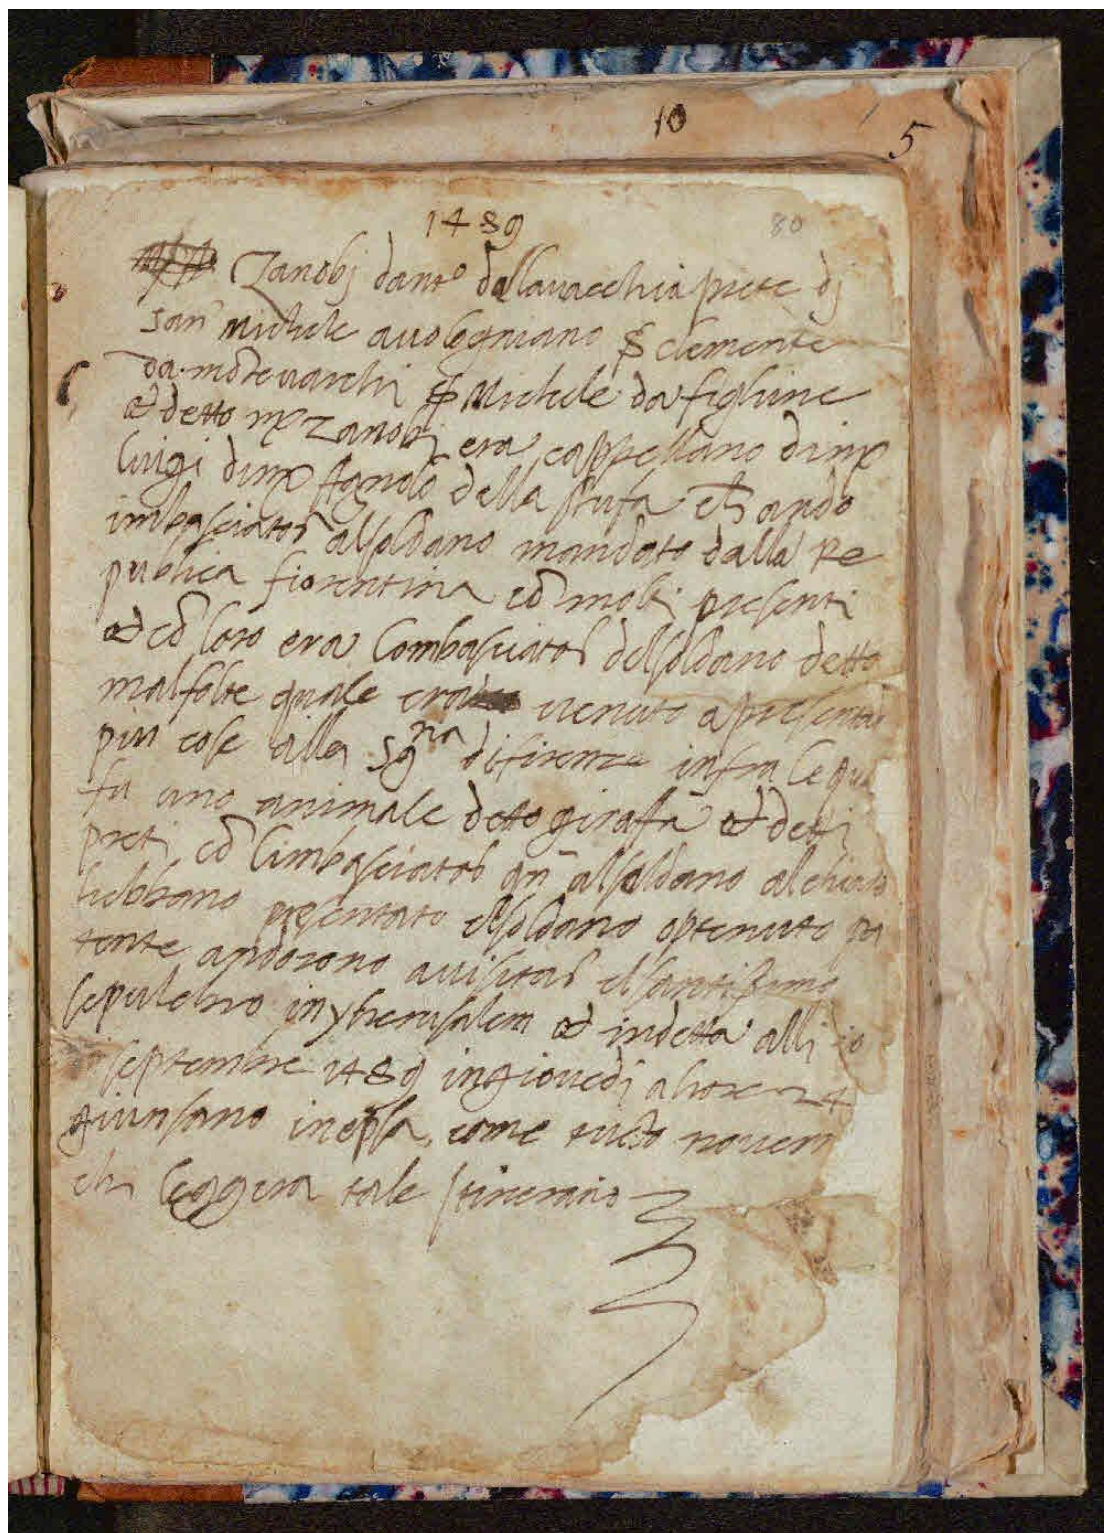 10
5
1489
80
Zanobj dant° dellavacchia prete dj
san michele avolognano § clemente
da mōtevarchi § Michele da fighine
et detto mȝ Zanobj era cappellano dimȝ
luigi dimȝ Agnolo della stufa ch ando
imbasciator alsoldano mandato dalla Re
publica fiorentina cō molti presenti
et cō loro era lombasciator delsoldano detto
malfolte quale era venuto apresentar
piu cose alla Sgria difirenze infra le qua
fu uno animale detto giraffa et detti
preti cō limbasciator qn̄ alsoldano
hebbono presentato elsoldano optenuto pa
tente andorono avisitar elsantissimo
sepulchro inyherusalem et indetta alli 10
septembre 1489 ingiovedj ahore 24
giunsano inepsa come tucto
chi leggera tale itinerario